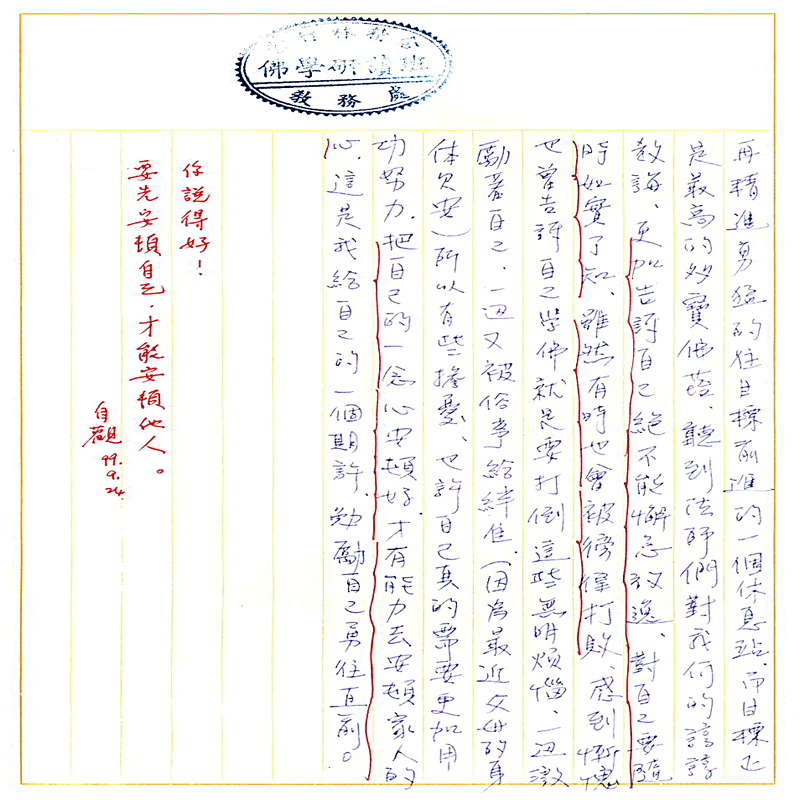 佛學研讀班
教務處
再精進勇猛的往目標前進的一個休息站、而目標正
是最高的多寶佛塔、聽到法師們對我們的諄諄
教誨、更加告訴自己絕不能懈怠放逸、對自己要隨
時如實了知、雖然有時也會被徬徨打敗、感到慚愧
也曾告訴自己學佛就是要打倒這些無明煩惱、一邊激
勵著自己、一邊又被俗事給絆住、(因為最近父母的身
体欠安)所以有些擔憂、也許自己真的需要更加用
功努力、把自己的一念心安頓好才有能力去安頓家人的
心、這是我給自己的一個期許、勉勵自己勇往直前。
你說得好!
要先安頓自己,才能安頓他人。
自觀 99.9.24